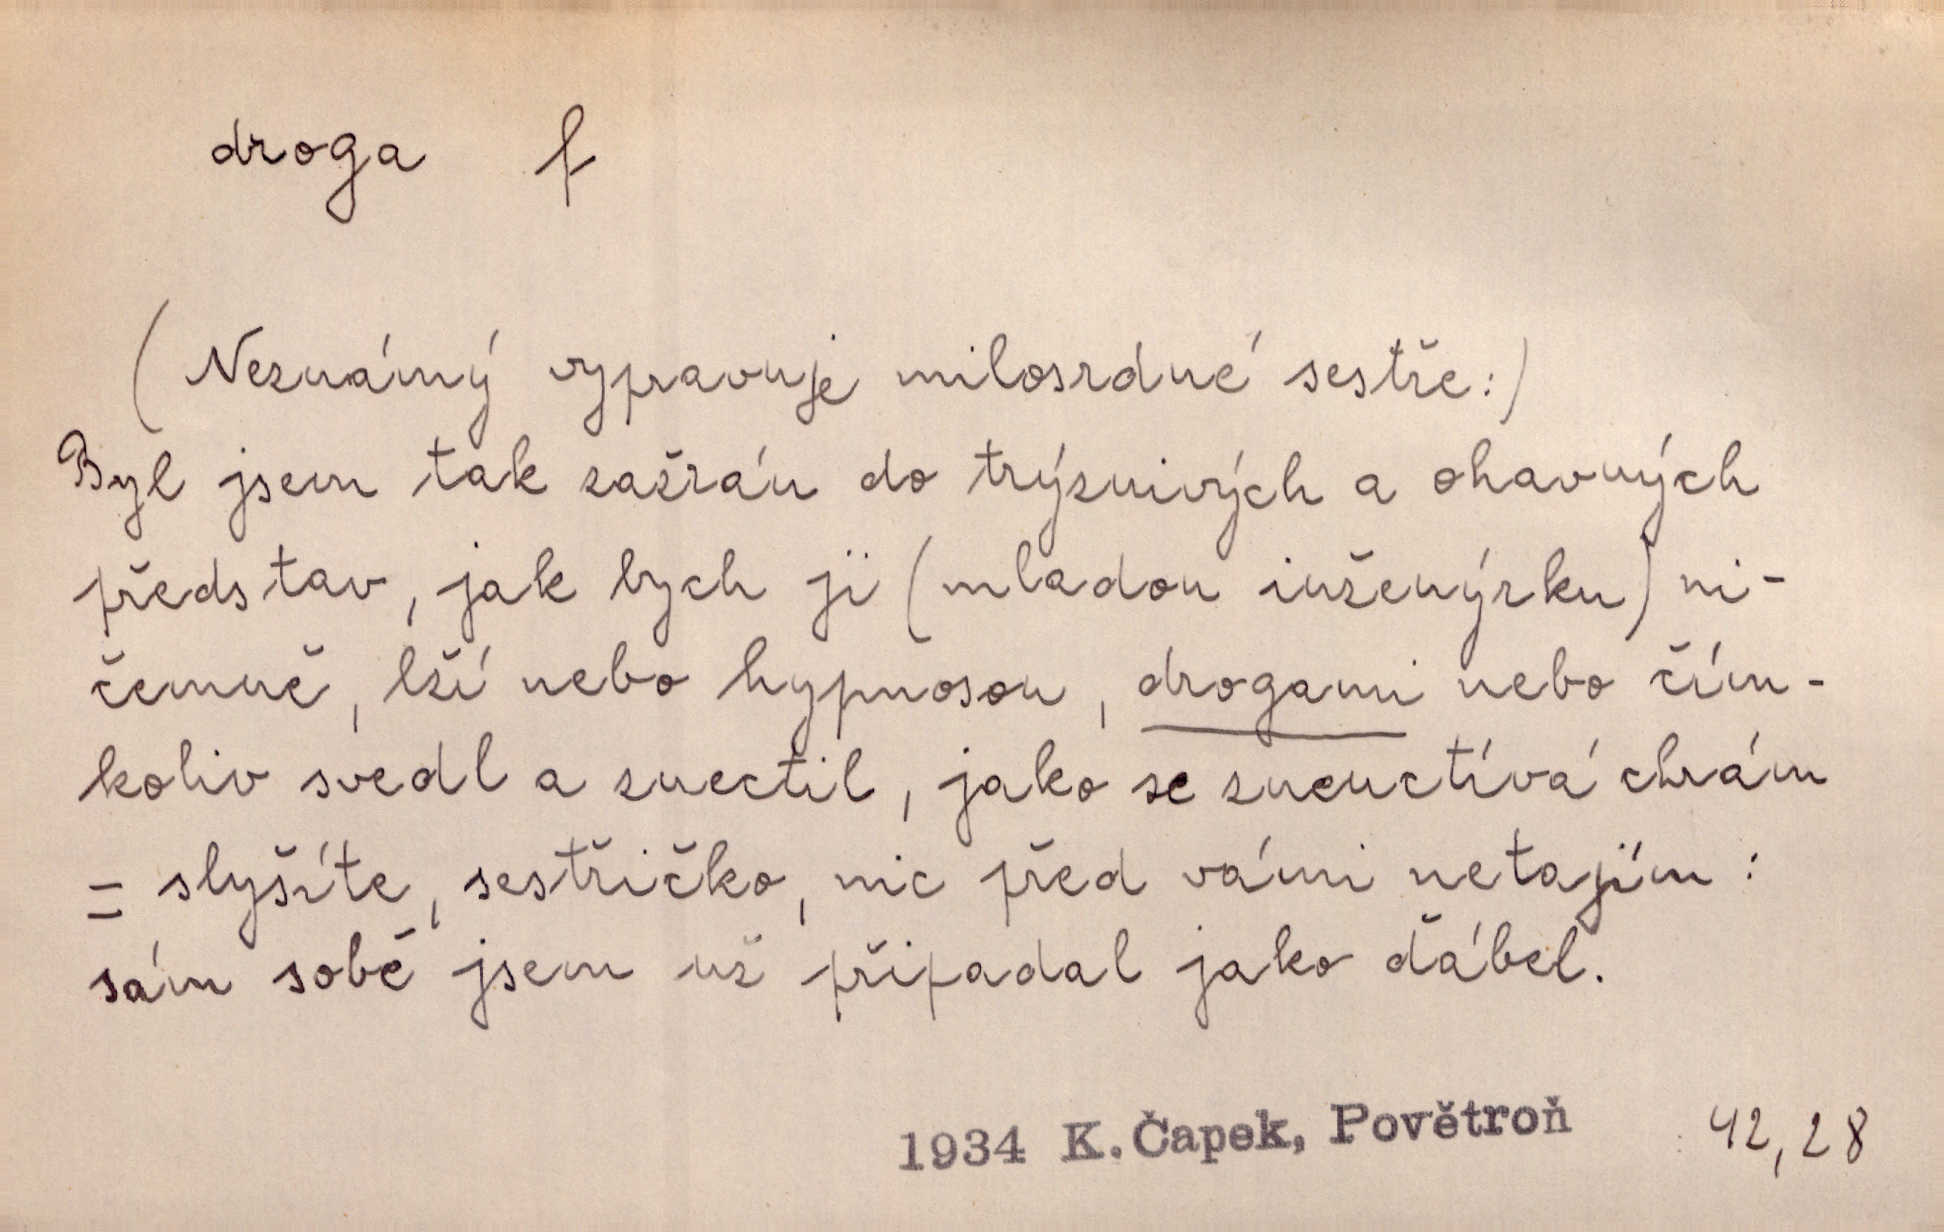 droga f
(Neznámý vypravuje milosrdné sestře:)
Byl jsem tak zažrán do trýznivých a ohavných
představ, jak bych ji (mladou inženýrku) ni-
čemně, lží nebo hypnosou, drogami nebo čím-
koliv svedl a znectil, jako se zneuctívá chrám
= slyšíte, sestřičko, nic před vámi netajím:
sám sobě jsem už připadal jako ďábel.
1934 K. Čapek, Povětroň 42,28